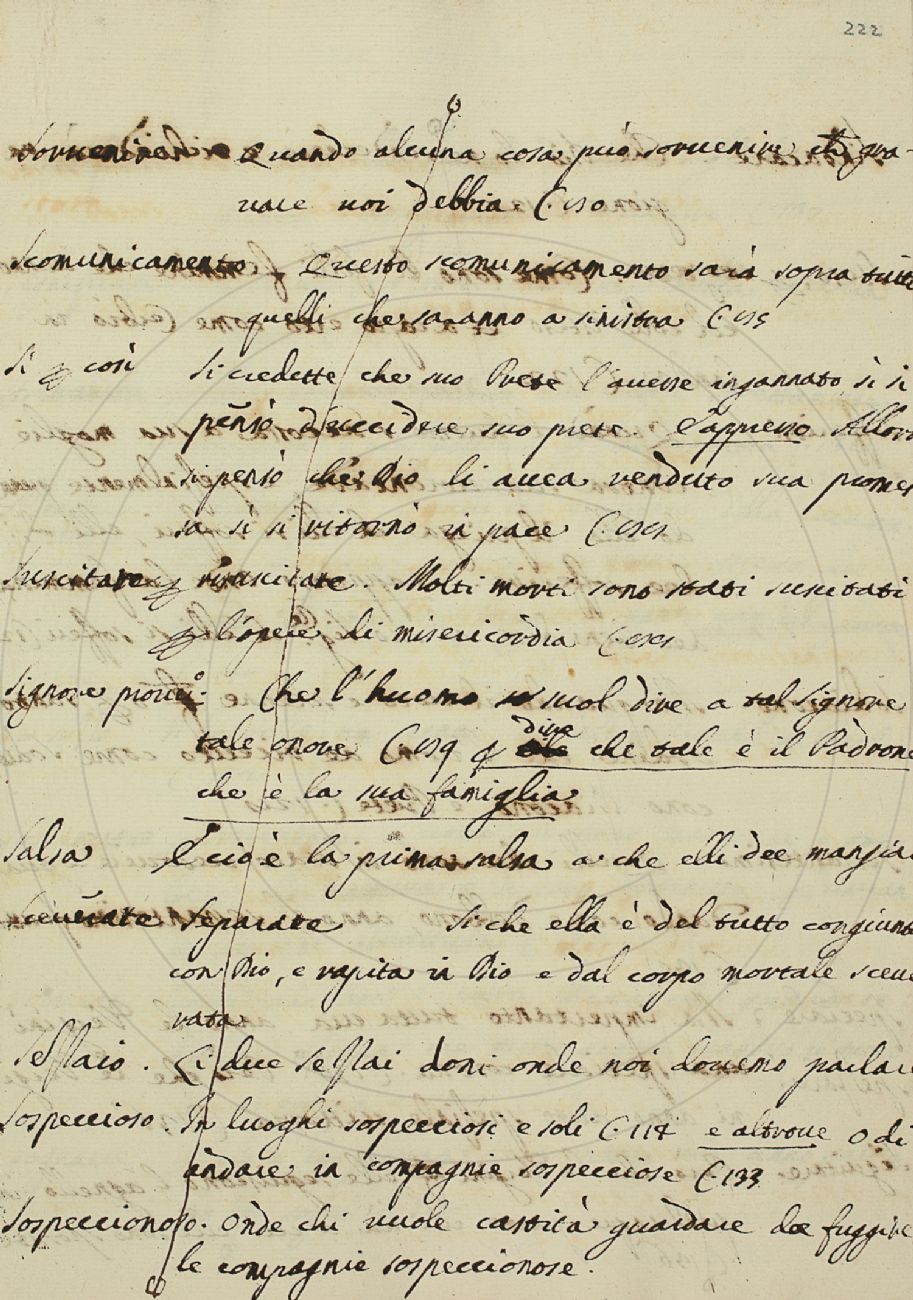 222
Sorvenire Quando alcuna cosa può sorvenire che gra-
vare noi debbia. C.
Scomunicamento. Questo scomunicamento sarà sopra tutti
quelli che saranno a sinistra C.
Si p così Si credette che suo Prete l'avesse ingannato sì si
pensò d'uccidere suo prete. E appresso Allora
si pensò che Dio li avea renduto sua promes
sa sì si ritornò in pace C.
Suscitare p risuscitare. Molti morti sono stati suscitati
p l'opere di misericordia C.
Signore Che l'huomo suol dire a tal Signore
tale onore C. dire che tale è il Padrone
che è la sua famiglia
Salsa E ciò è la prima salsa a che elli dee mangiar
Sceverate Separate Si che ella è del tutto congiunta
con Dio, e rapita in Dio e dal corpo mortale sceve
rata
Li due doni onde noi dovemo parlare
Sospeccioso. In luoghi sospecciosi e soli C. 117 e altrove O di
andare in compagnie sospecciose C. 133
Sospeccionoso. Onde chi vuole castità guardare dee fuggire
le compagnie sospeccionose.